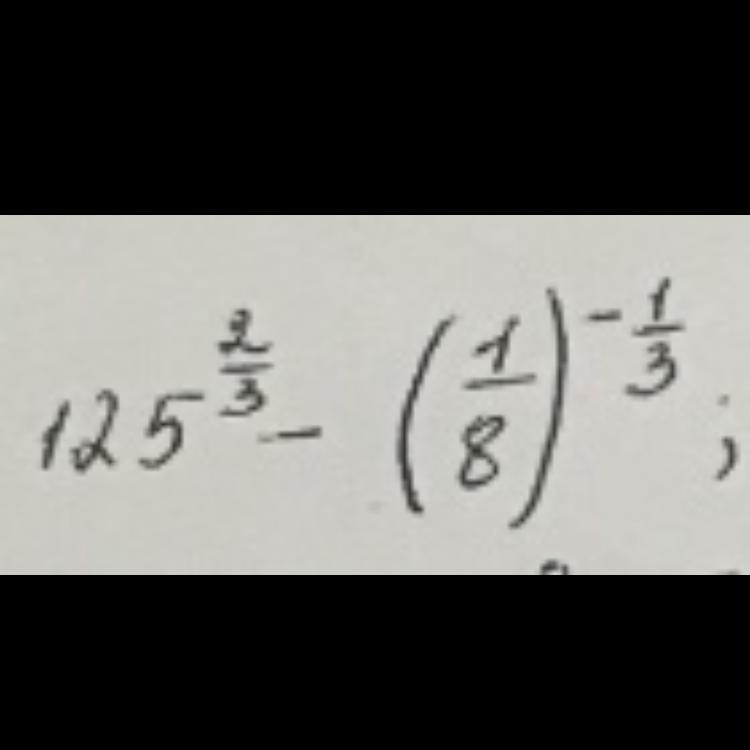 $125^{\frac{2}{3}} - \left(\frac{1}{8}\right)^{-\frac{1}{3}};$